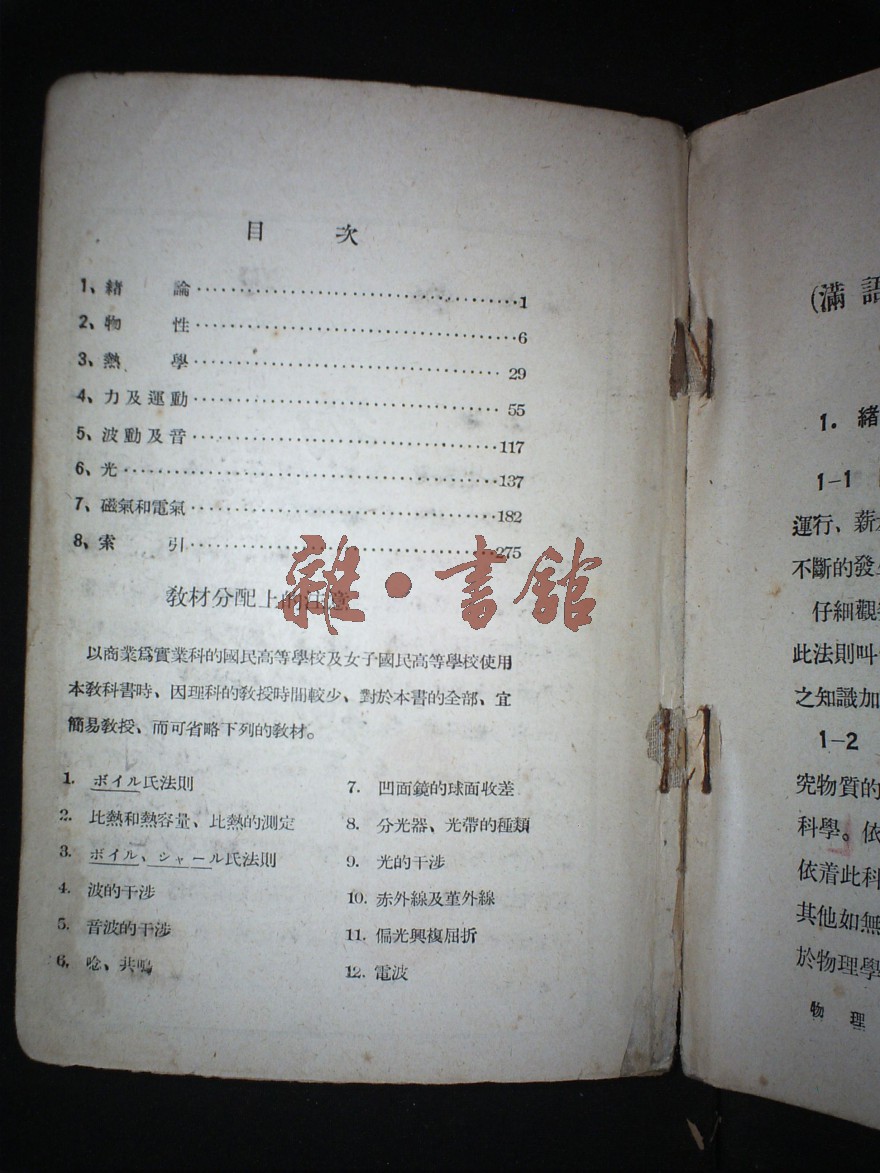 目　次
1、緒　論……………………………1
2、物　性……………………………6
3、熱　學……………………………29
4、力及運動……………………………55
5、波動及音……………………………117
6、光……………………………137
7、磁氣和電氣……………………………182
8、索　引……………………………275
教材分配上的注意
以商業爲實業科的國民高等學校及女子國民高等學校使用
本教科書時、因理科的教授時間較少、對於本書的全部、宜
簡易教授、而可省略下列的教材。
1. ボイル氏法則
2. 比熱和熱容量、比熱的測定
3. ボイル、シャール氏法則
4. 波的干涉
5. 音波的干涉
6. 唸、共鳴
7. 凹面鏡的球面收差
8. 分光器、光帶的種類
9. 光的干涉
10. 赤外線及菫外線
11. 偏光與複屈折
12. 電波
雜・書館
(滿語
1. 緒
1-1
運行、薪
不斷的發
仔細觀
此法則叫
之知識加
1-2
究物質的
科學。依
依着此科
其他如無
於物理學
物　理